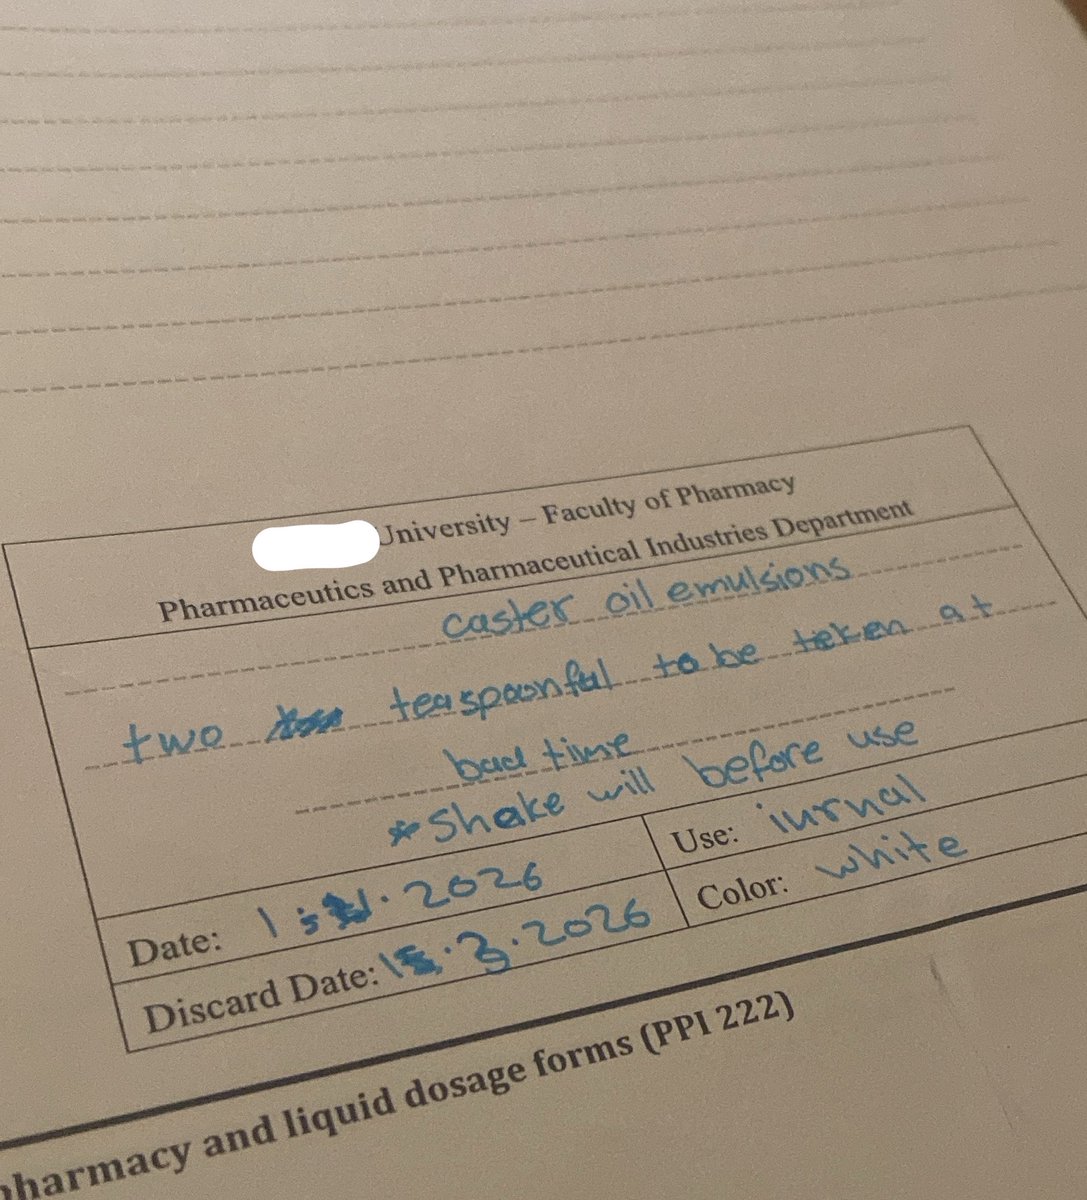 University – Faculty of Pharmacy
Pharmaceutics and Pharmaceutical Industries Department
caster oil emulsions
two teaspoonful to be teken at
bad time
* Shake will before use
Date: 2026
Use: inrnal
Discard Date: 3.2026
Color: white
pharmacy and liquid dosage forms (PPI 222)